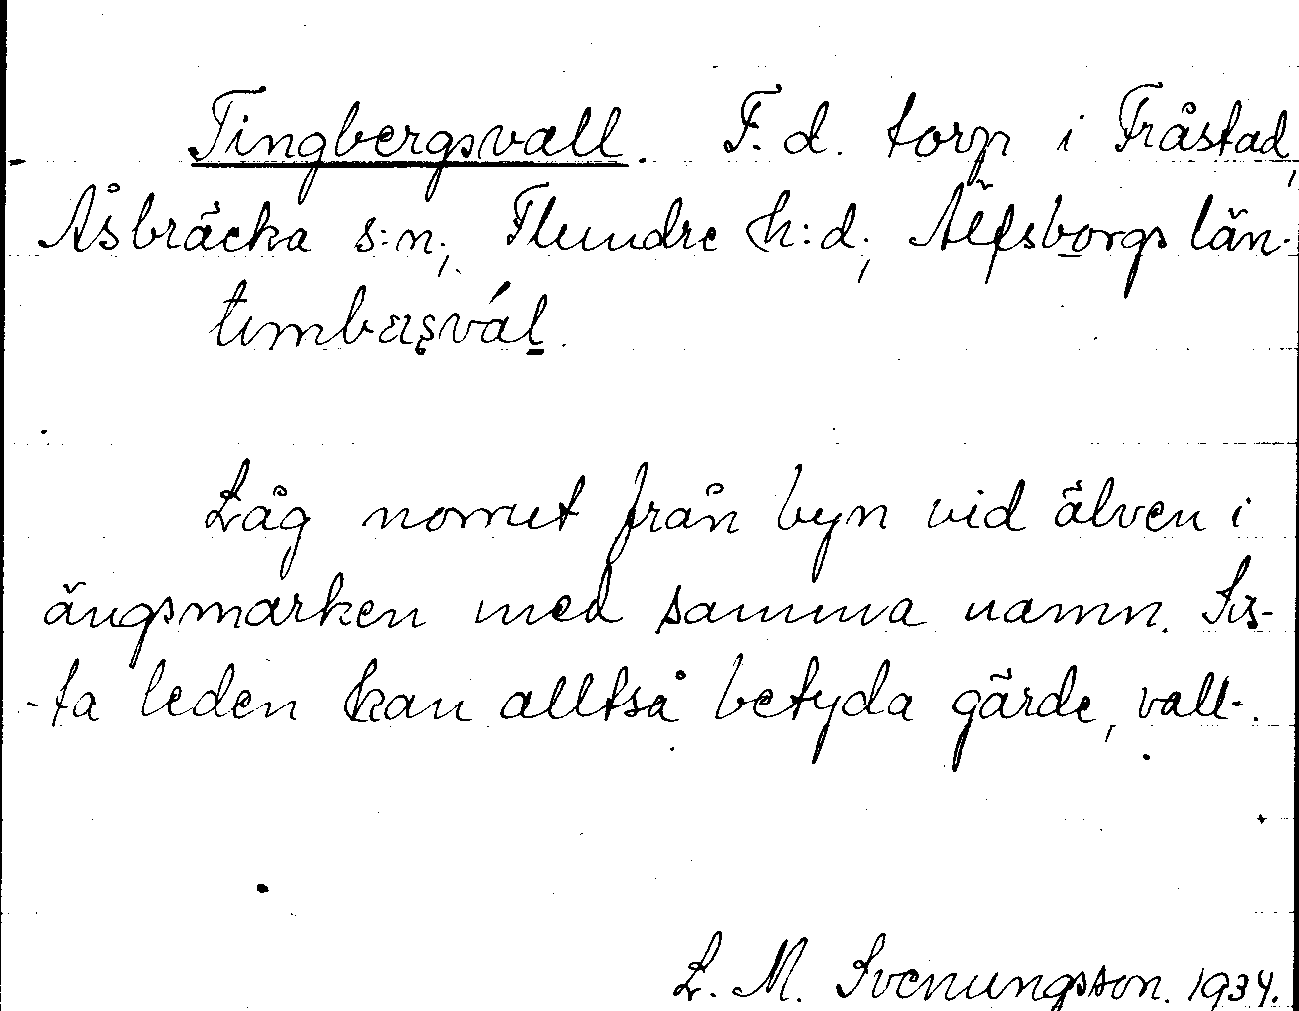 Tingbergsvall. F. d. torp i Fråstad,
Åsbräcka s:n, Flundre h:d, Älfsborgs län.
Låg norrut från byn vid älven i
ängsmarken med samma namn. Sis-
-ta leden kan alltså betyda gärde, vall.
L. M. Svenungsson. 1934.